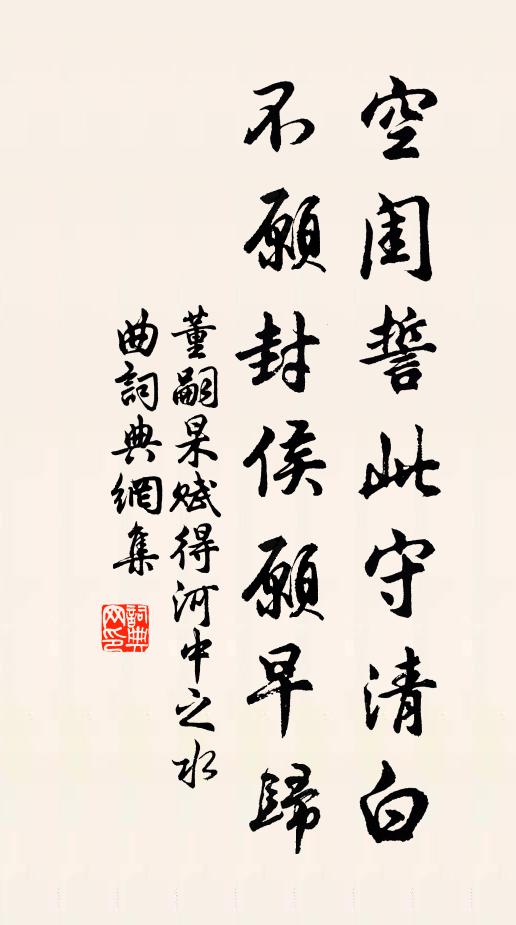 空閨誓此守清白
不願封侯願早歸
董嗣杲賦得河中之水
曲詞典網集
詞典
网印